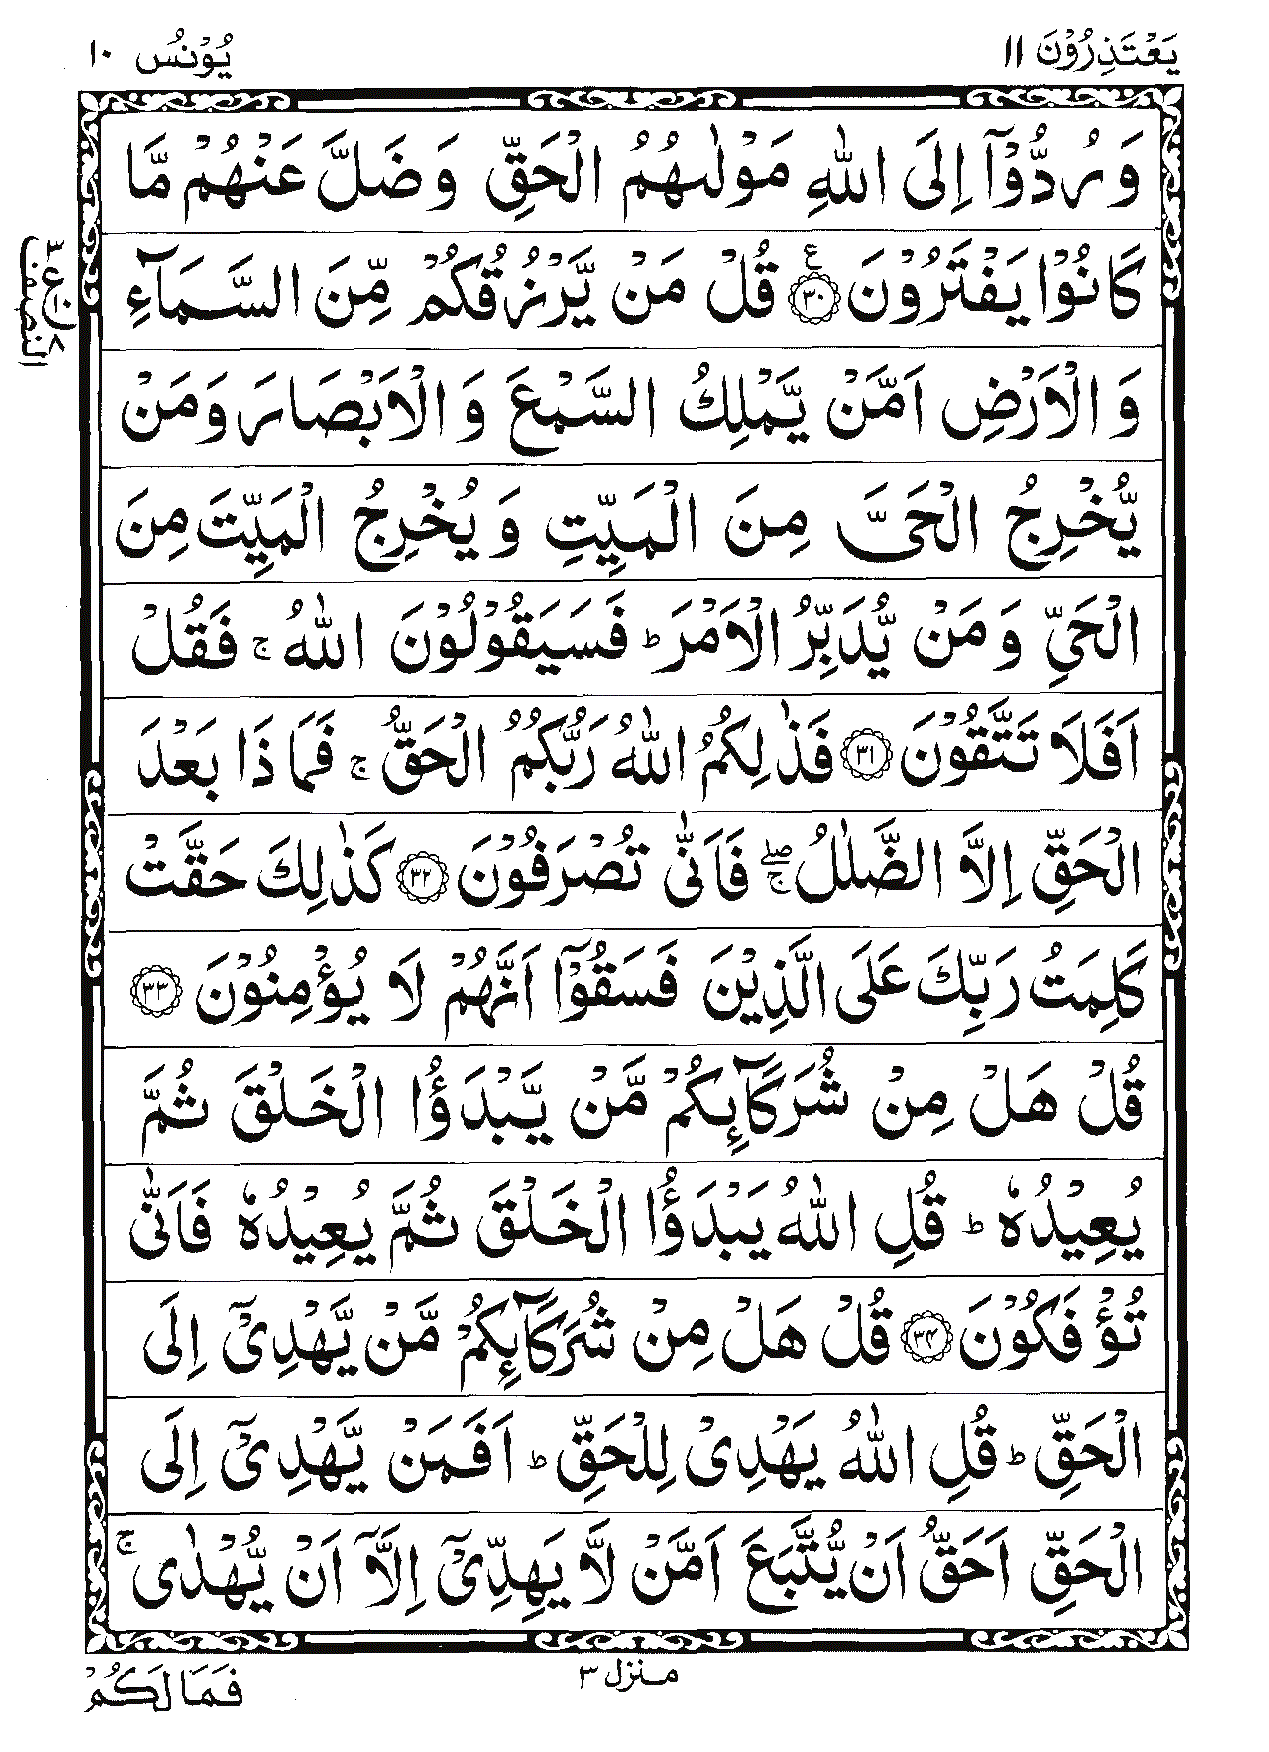 یَعْتَذِرُوْنَ ۱۱
یُوْنُس ۱۰
وَ رُدُّوْۤا اِلَى اللّٰهِ مَوْلٰىهُمُ الْحَقِّ وَ ضَلَّ عَنْهُمْ مَّا
كَانُوْا یَفْتَرُوْنَ ۳۰ ع قُلْ مَنْ یَّرْزُقُكُمْ مِّنَ السَّمَآءِ
وَ الْاَرْضِ اَمَّنْ یَّمْلِكُ السَّمْعَ وَ الْاَبْصَارَ وَ مَنْ
یُّخْرِجُ الْحَیَّ مِنَ الْمَیِّتِ وَ یُخْرِجُ الْمَیِّتَ مِنَ
الْحَیِّ وَ مَنْ یُّدَبِّرُ الْاَمْرَ ؕ فَسَیَقُوْلُوْنَ اللّٰهُ ۚ فَقُلْ
اَفَلَا تَتَّقُوْنَ ۳۱ فَذٰلِكُمُ اللّٰهُ رَبُّكُمُ الْحَقُّ ۚ فَمَا ذَا بَعْدَ
الْحَقِّ اِلَّا الضَّلٰلُ ۖۚ فَاَنّٰى تُصْرَفُوْنَ ۳۲ كَذٰلِكَ حَقَّتْ
كَلِمَتُ رَبِّكَ عَلَى الَّذِیْنَ فَسَقُوْۤا اَنَّهُمْ لَا یُؤْمِنُوْنَ ۳۳
قُلْ هَلْ مِنْ شُرَكَآىِٕكُمْ مَّنْ یَّبْدَؤُا الْخَلْقَ ثُمَّ
یُعِیْدُهٗ ؕ قُلِ اللّٰهُ یَبْدَؤُا الْخَلْقَ ثُمَّ یُعِیْدُهٗ فَاَنّٰى
تُؤْفَكُوْنَ ۳۴ قُلْ هَلْ مِنْ شُرَكَآىِٕكُمْ مَّنْ یَّهْدِیْۤ اِلَى
الْحَقِّ ؕ قُلِ اللّٰهُ یَهْدِیْ لِلْحَقِّ ؕ اَفَمَنْ یَّهْدِیْۤ اِلَى
الْحَقِّ اَحَقُّ اَنْ یُّتَّبَعَ اَمَّنْ لَّا یَهِدِّیْۤ اِلَّاۤ اَنْ یُّهْدٰى ۚ
منزل ۳
فَمَا لَكُمْ
النصف
ع ۳ ۸